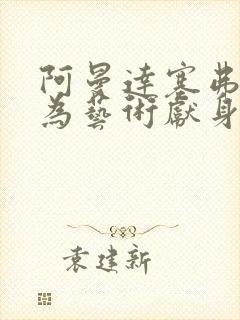 阿曼達塞弗
為藝術獻身
袁建新